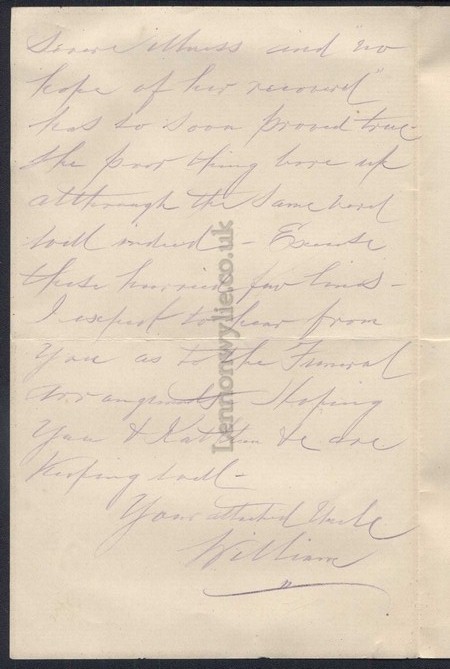 Severe illness and "no
hope of her recovery"
has so soon proved true -
the poor thing bore up
all through the same
well indeed - Excuse
these hurried few lines -
I expect to hear from
You as to the Funeral
Arrangements Hoping
You & Kathleen &c are
Keeping well -
Your attached Uncle
William
Lennonwylie.co.uk